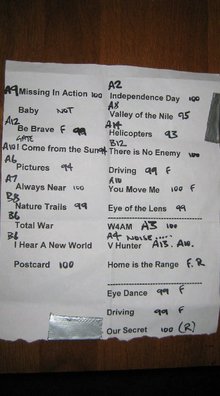 A9 Missing In Action 100
Baby NOT
A12
Be Brave F 99
GATE
A10 I Come from the Sun 94
A6
Pictures 94
A7
Always Near 100
B3
Nature Trails 99
B6
Total War
B6
I Hear A New World
Postcard 100
A2
Independence Day 100
A8
Valley of the Nile 95
A14
Helicopters 93
B12
There is No Enemy 100
Driving 99 F
A10
You Move Me 100 F
Eye of the Lens 99
W4AM A3 100
A4 NOISE.....
V Hunter A13. A10.
Home is the Range F. R
Eye Dance 99 F
Driving 99 F
Our Secret 100 (R)